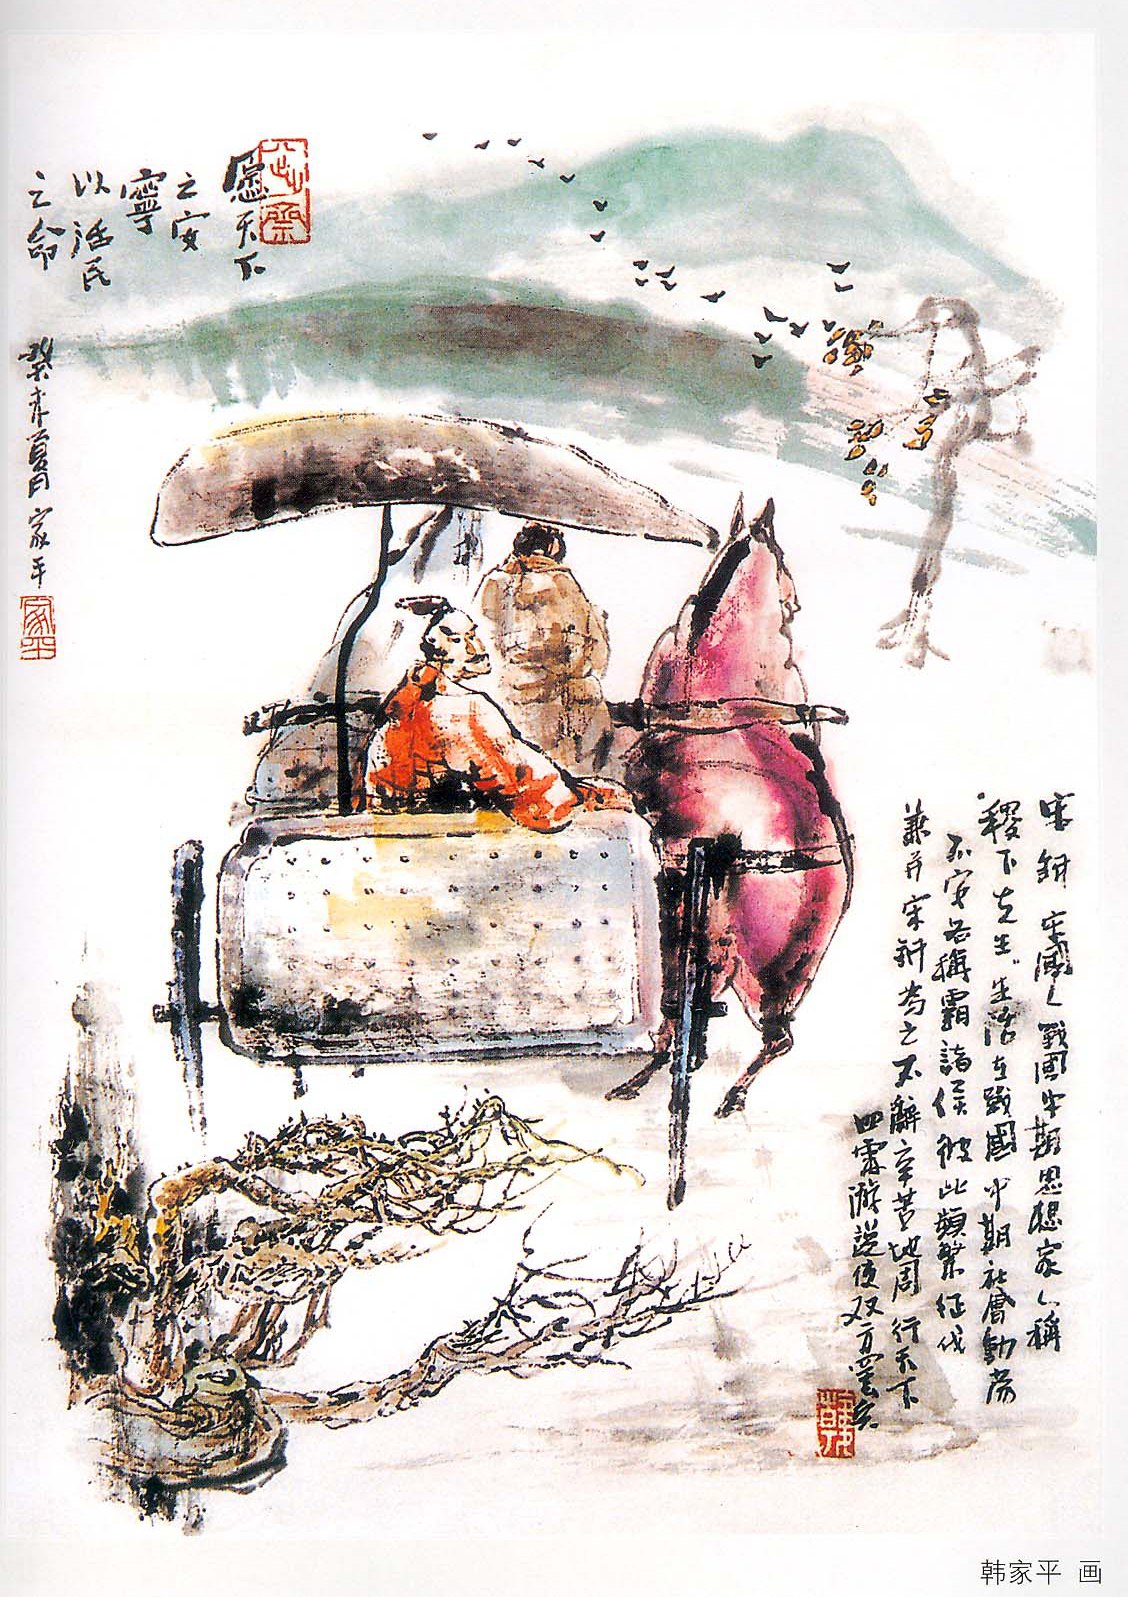 愿天下
之安
寧
以活民
之命
癸未夏月家平
家平
宋鈃宋國人戰國中期思想家人稱
稷下先生生活在戰國中期社會動蕩
不安各稱霸諸侯彼此頻繁征伐
兼并宋鈃為之不辭辛苦地周行天下
四處游說使双方罢兵
韓
韩家平 画